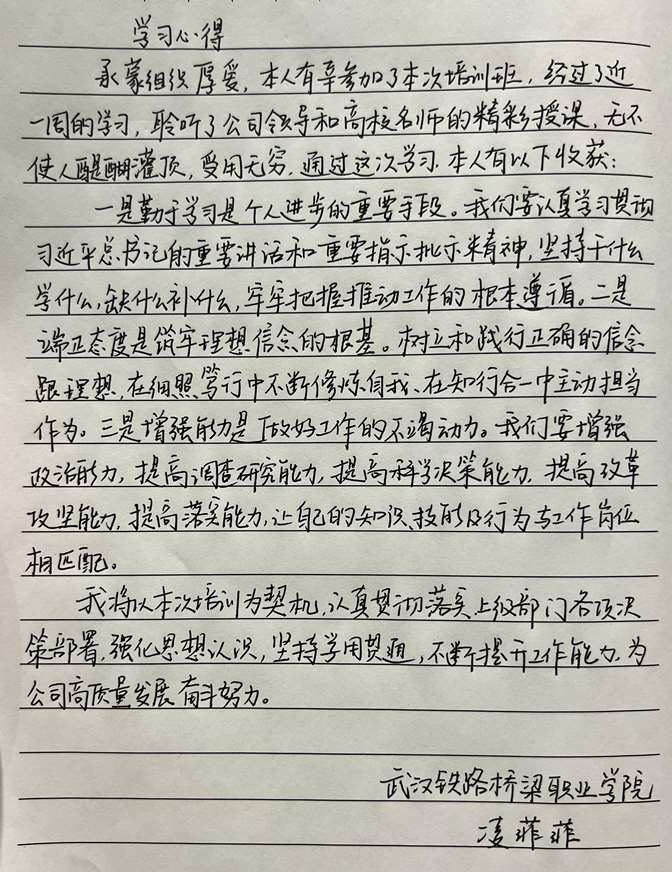 学习心得
承蒙组织厚爱，本人有幸参加了本次培训班，经过了近
一周的学习，聆听了公司领导和高校名师的精彩授课，无不
使人醍醐灌顶，受用无穷，通过这次学习，本人有以下收获：
一是勤于学习是个人进步的重要手段。我们要认真学习贯彻
习近平总书记的重要讲话和重要指示批示精神，坚持干什么
学什么，缺什么补什么，牢牢把握推动工作的根本遵循。二是
端正态度是筑牢理想信念的根基。树立和践行正确的信念
跟理想，在细照笃行中不断修炼自我、在知行合一中主动担当
作为。三是增强能力是做好工作的不竭动力。我们要增强
政治能力，提高调查研究能力，提高科学决策能力，提高改革
攻坚能力，提高落实能力，让自己的知识、技能及行为与工作岗位
相匹配。
我将以本次培训为契机，认真贯彻落实上级部门各项决
策部署，强化思想认识，坚持学用贯通，不断提升工作能力，为
公司高质量发展奋斗努力。
武汉铁路桥梁职业学院
凌菲菲